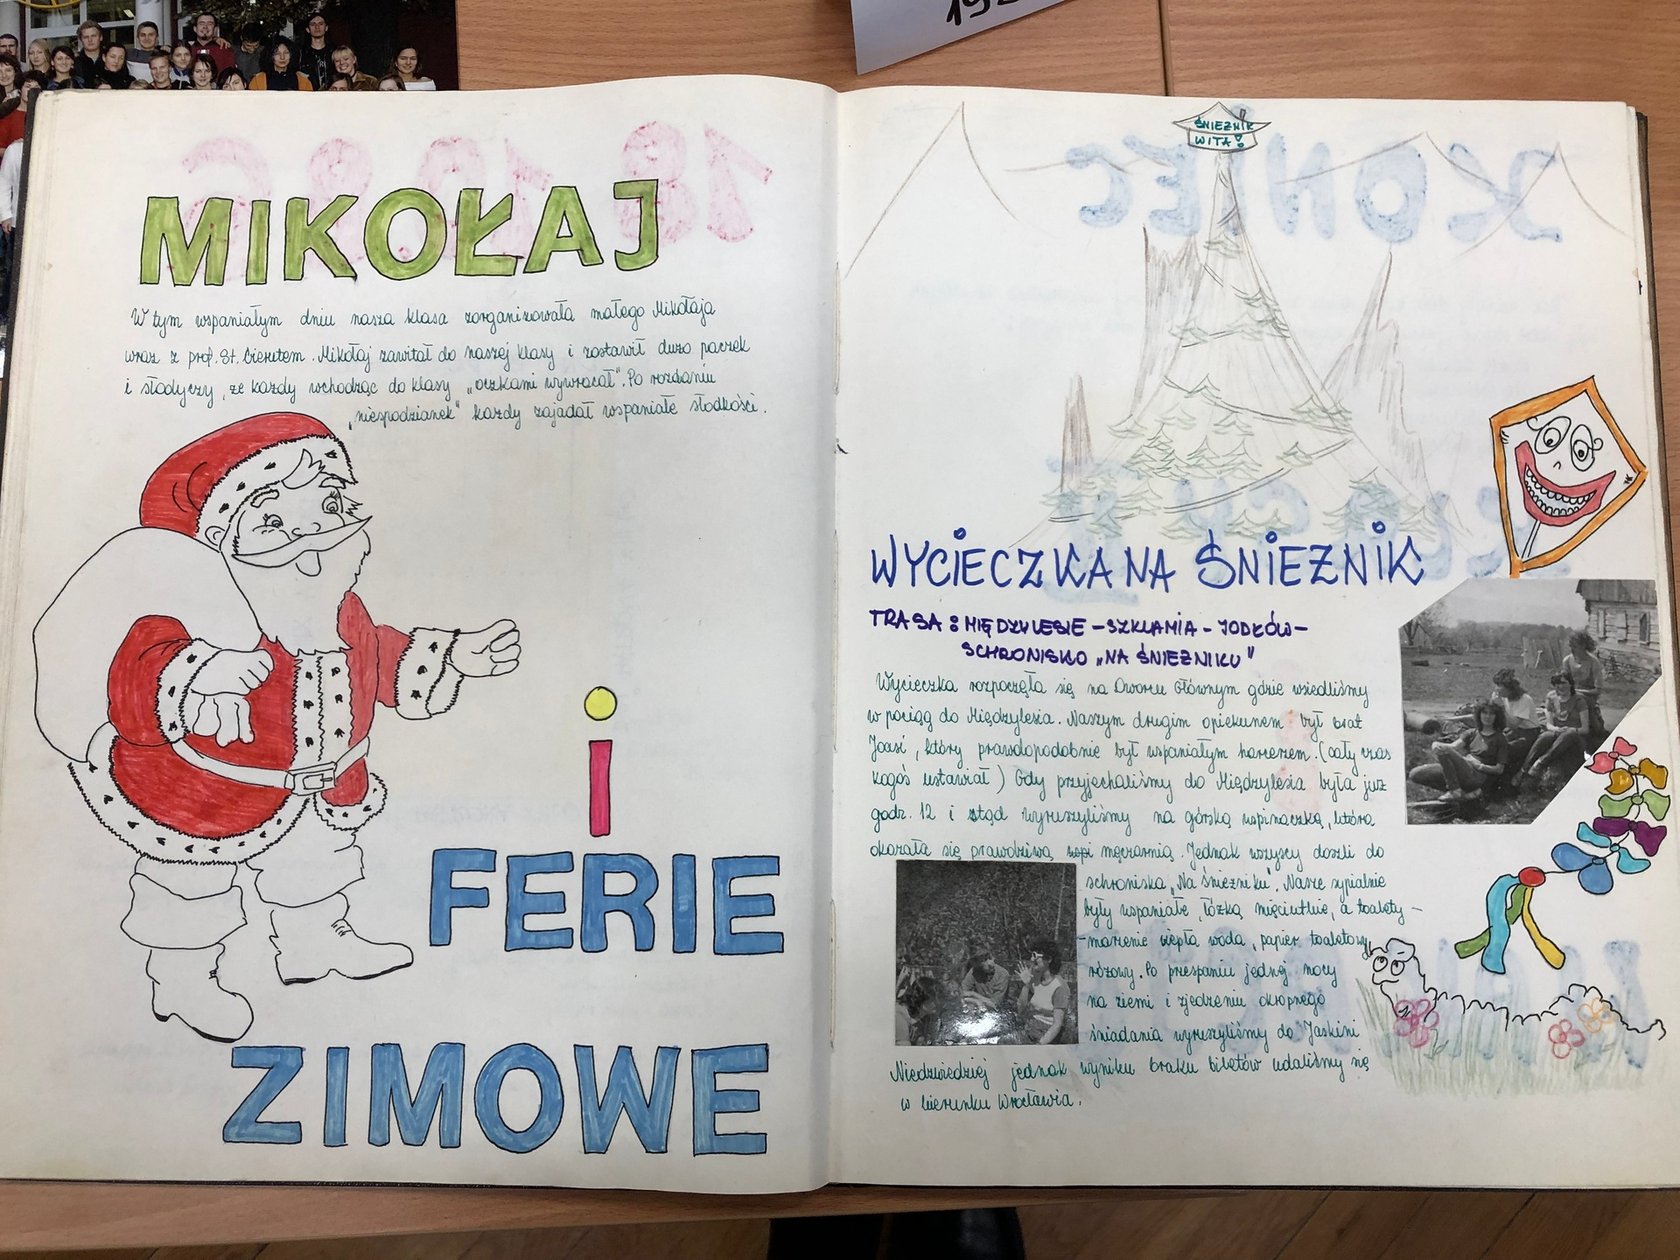 MIKOŁAJ
W tym wspaniałym dniu nasza klasa zorganizowała małego Mikołaja
wraz z prof. St. Bierutem. Mikołaj zawitał do naszej klasy i zostawił dużo paczek
i słodyczy, że każdy wchodząc do klasy „oczkami wywracał". Po rozdaniu
„niespodzianek" każdy zajadał wspaniałe słodkości.
i
FERIE
ZIMOWE
ŚNIEŻNIK
WITA!
WYCIECZKA NA ŚNIEŻNIK
TRASA: MIĘDZYLESIE – SZKLARNIA – JODŁÓW –
SCHRONISKO „NA ŚNIEŻNIKU"
Wycieczka rozpoczęła się na Dworcu Głównym gdzie wsiedliśmy
w pociąg do Międzylesia. Naszym drugim opiekunem był brat
Joasi, który prawdopodobnie był wspaniałym harcerzem. (cały czas
kogoś ustawiał) Gdy przyjechaliśmy do Międzylesia była już
godz. 12 i stąd wyruszyliśmy na górską wspinaczkę, która
okazała się prawdziwą męczarnią. Jednak wszyscy doszli do
schroniska „Na Śnieżniku". Nasze sypialnie
były wspaniałe, łóżka mięciutkie, a toalety –
– marzenie ciepła woda, papier toaletowy
różowy. Po przespaniu jednej nocy
na ziemi i zjedzeniu okropnego
śniadania wyruszyliśmy do Jaskini
Niedźwiedziej jednak wyniku braku biletów udaliśmy się
w kierunku Wrocławia.